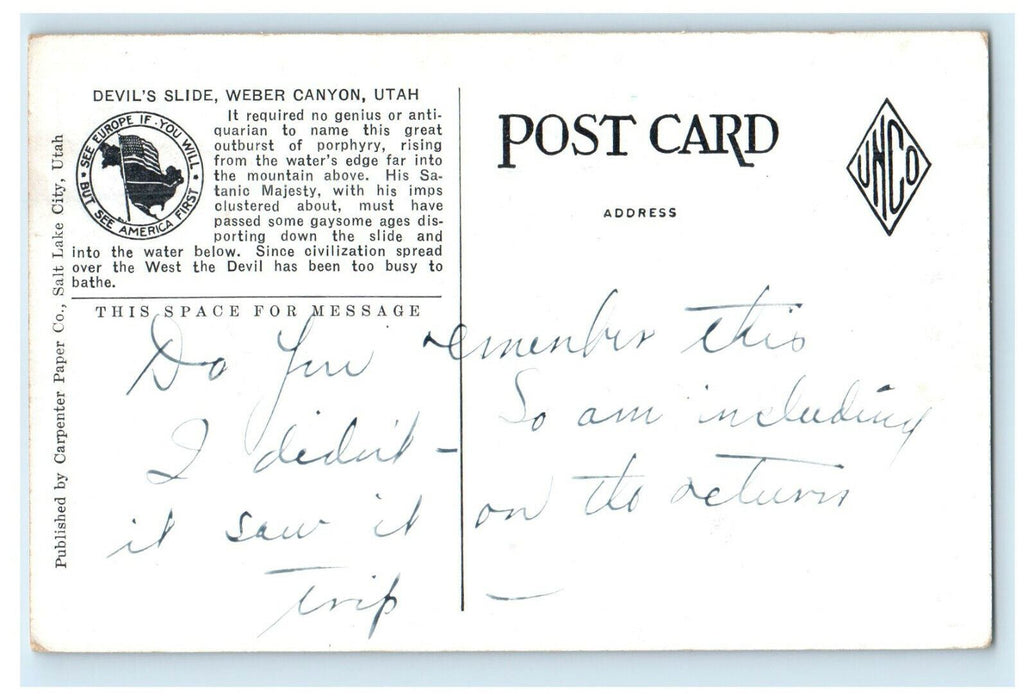 DEVIL'S SLIDE, WEBER CANYON, UTAH
It required no genius or anti-
quarian to name this great
outburst of porphyry, rising
from the water's edge far into
the mountain above. His Sa-
tanic Majesty, with his imps
clustered about, must have
passed some gaysome ages dis-
porting down the slide and
into the water below. Since civilization spread
over the West the Devil has been too busy to
bathe.
SEE EUROPE IF YOU WILL
BUT SEE AMERICA FIRST
Published by Carpenter Paper Co., Salt Lake City, Utah
THIS SPACE FOR MESSAGE
POST CARD
ADDRESS
UNCO
Do you remember this
I didn't - So am including
it saw it on the return
trip -